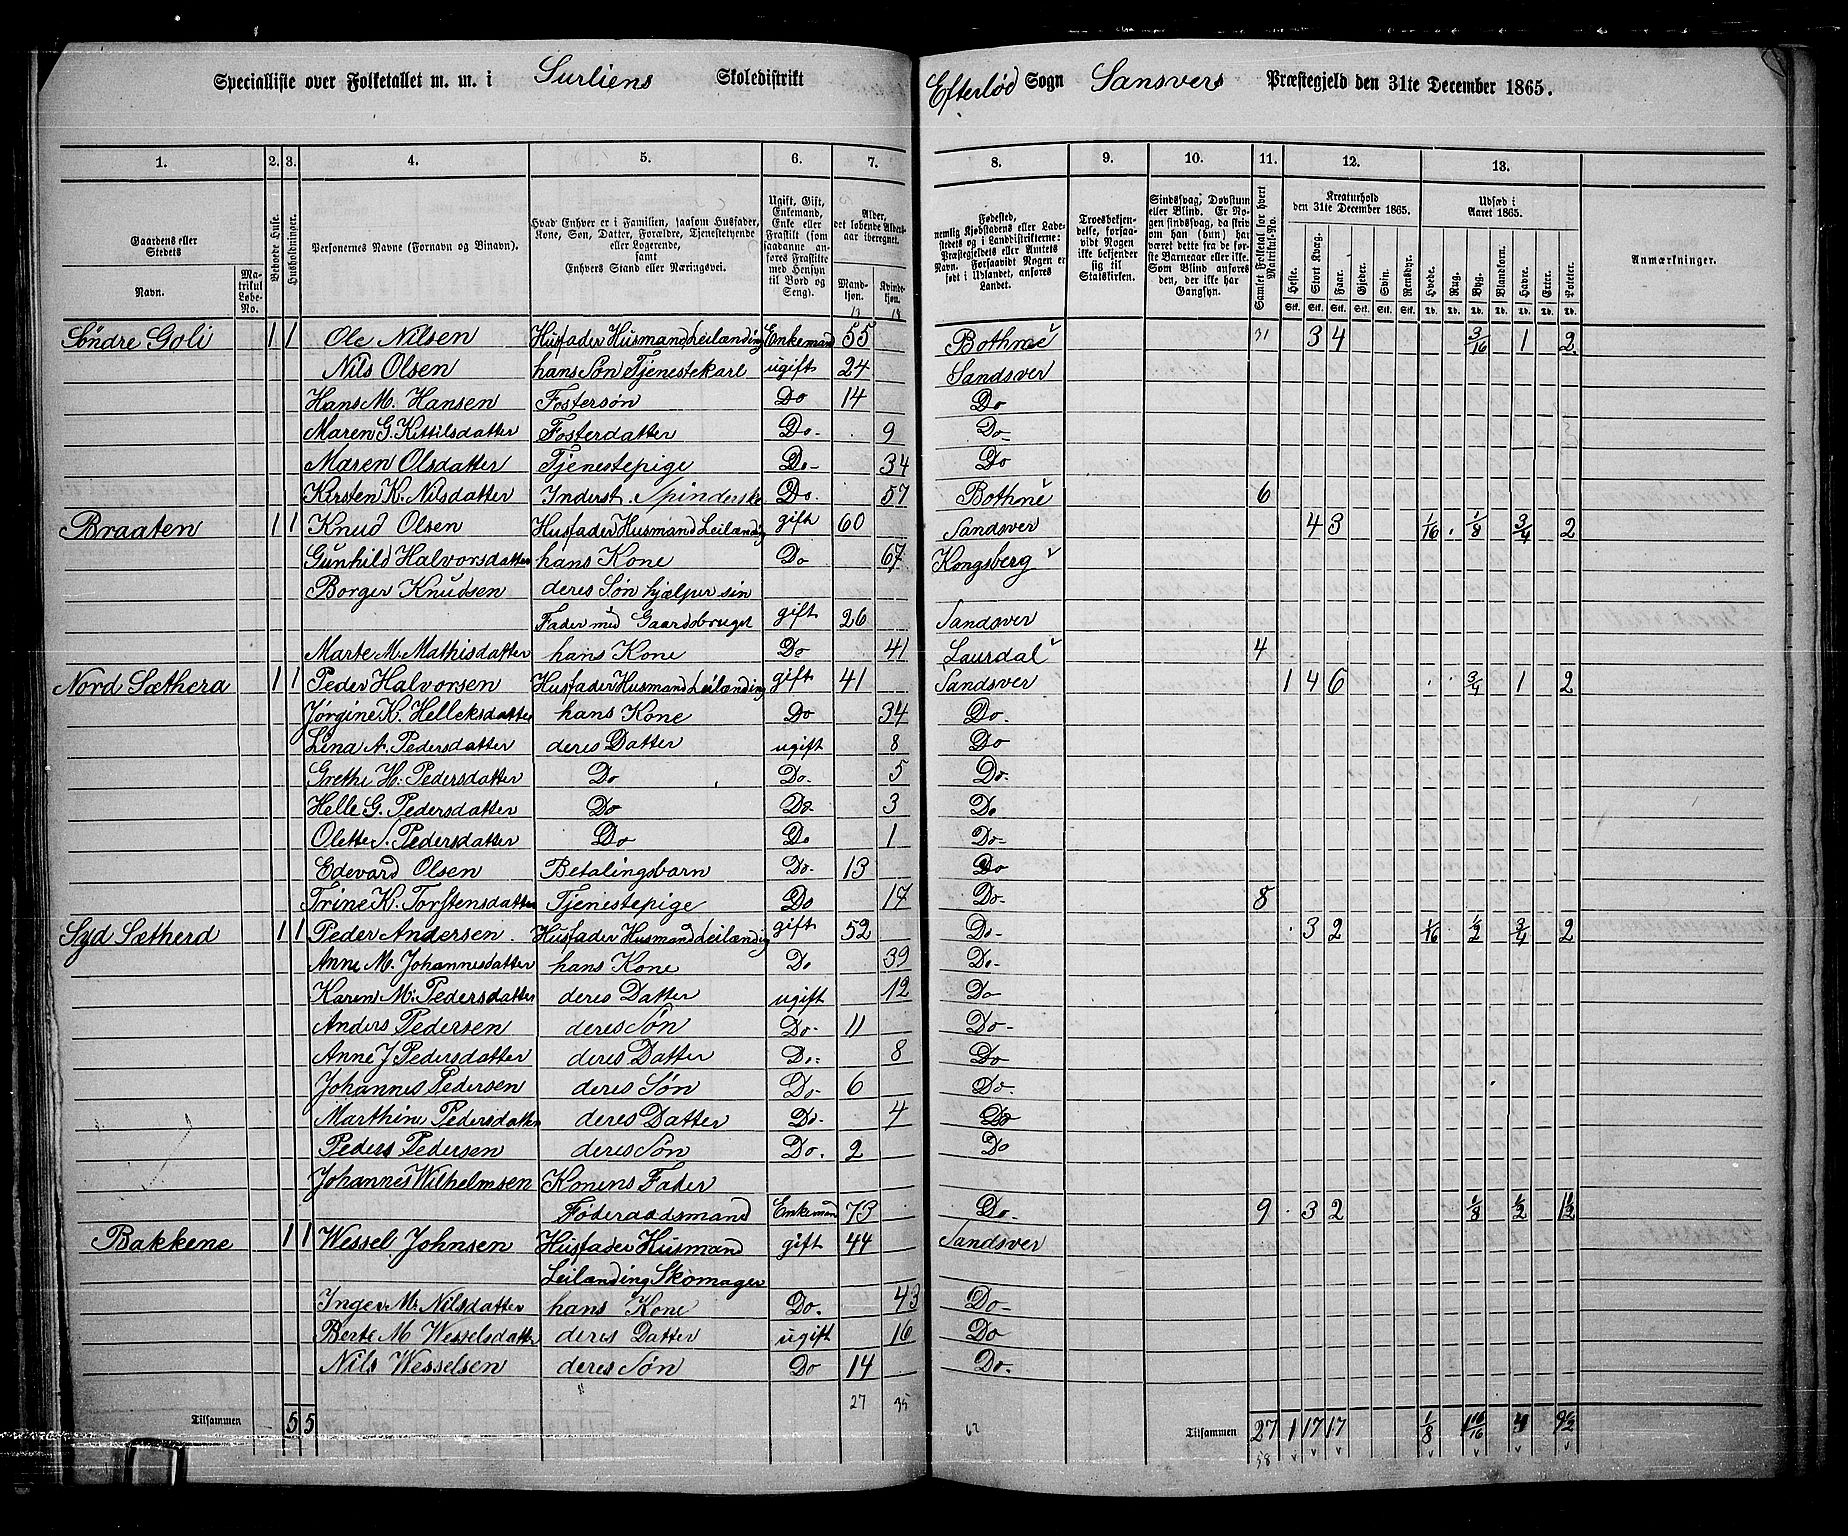 Specialliste over Folketallet m. m. i Surliens Skoledistrikt Efterlød Sogn Sansvers Præstegjeld den 31te December 1865.
1. 2. 3. 4. 5. 6. 7. 8. 9. 10. 11. 12. 13.
Gaardens eller Stedets Navn. Matrikul Løbe-No. Beboede Huse. Husholdninger. Personernes Navne (Fornavn og Binavn). Hvad Enhver er i Familien, saasom Husfader, Kone, Søn, Datter, Forældre, Tjenestetyende eller Logerende, samt Enhvers Stand eller Næringsvei. Ugift, Gift, Enkemand, Enke eller Fraskilt (som saadanne anføres Fraskilte med Hensyn til Bord og Seng). Alder, det løbende Aldersaar iberegnet. Mandkjøn. Kvindekjøn. Fødested, nemlig Kjøbstadens eller Ladestedets og i Landdistrikterne: Præstegjeldets eller Amtets Navn. Forsaavidt Nogen er født i Udlandet, anføres Landet. Troesbekjendelse, forsaavidt Nogen ikke bekjender sig til Statskirken. Sindssvag, Døvstum eller Blind. Er Nogen sindssvag, da skrives om han (hun) har været dette fra de første Barneaar eller ikke. Som Blind anføres den, der ikke har Gangsyn. Samlet Folketal for hvert Matrikul-No. Kreaturhold den 31te December 1865. Heste. Stort Kvæg. Faar. Gjeder. Svin. Rensdyr. Udsæd i Aaret 1865. Hvede. Rug. Byg. Blandkorn. Havre. Erter. Poteter. Anmærkninger.
Stk. Stk. Stk. Stk. Stk. Stk. Td. Td. Td. Td. Td. Td. Td.
Søndre Goli 1 1 Ole Nilsen Husfader Husmand Leilænding Enkemand 55 Bothne 3 4 3/16 1 2
Nils Olsen hans Søn Tjenestekarl ugift 24 Sandsver
Hans M. Hansen Fostersøn Do 14 Do
Maren G. Kittilsdatter Fosterdatter Do- 9 Do-
Maren Olsdatter Tjenestepige Do- 34 Do
Kirsten K. Nilsdatter Inderst. Spinderske Do. 57 Bothne 6
Braaten 1 1 Knud Olsen Husfader Husmand Leilænding gift 60 Sandsver 4 3 1/16 1/8 3/4 2
Gunhild Halvorsdatter hans Kone Do 67 Kongsberg
Borger Knudsen deres Søn hjælper sin
Fader med Gaardsbruget gift 26 Sandsver
Marte M. Mathisdatter hans Kone Do 41 Laurdal 4
Nord Sæthera 1 1 Peder Halvorsen Husfader Husmand Leilænding gift 41 Sandsver 1 4 6 3/4 1 2
Jørgine K. Helleksdatter hans Kone Do 34 Do.
Lina A. Pedersdatter deres Datter ugift 8 Do
Grethe H. Pedersdatter Do Do- 5 Do-
Helle G. Pedersdatter Do Do 3 Do
Olette S. Pedersdatter Do Do 1 Do-
Edevard Olsen Betalingsbarn Do- 13 Do
Trine K. Torstensdatter Tjenestepige Do 17 Do- 8
Syd Sætherd 1 1 Peder Andersen Husfader Husmand Leilænding gift 52 Do- 3 2 1/16 1/2 3/4 2
Anne M. Johannesdatter hans Kone Do 39 Do-
Karen M. Pedersdatter deres Datter ugift 12 Do
Anders Pedersen deres Søn Do- 11 Do-
Anne J Pedersdatter deres Datter Do- 8 Do
Johannes Pedersen deres Søn Do- 6 Do-
Marthine Pedersdatter deres Datter Do- 4 Do
Peders Pedersen deres Søn Do. 2 Do
Johannes Wilhelmsen Konens Fader
Føderaadsmand Enkeman 73 Do- 9 3 2 1/8 1/2 1 1/2
Bakkene 1 1 Wessel Johnsen Husfader Husmand gift 44 Sandsver
Leilænding Skomager
Inger M. Nilsdatter hans Kone Do. 43 Do-
Berte M Wesselsdatter deres Datter ugift 16 Do
Nils Wesselsen deres Søn Do 14 Do-
27 35 62
Tilsammen 5 5 Tilsammen 27 1 17 17 1/8 9 1/2
58